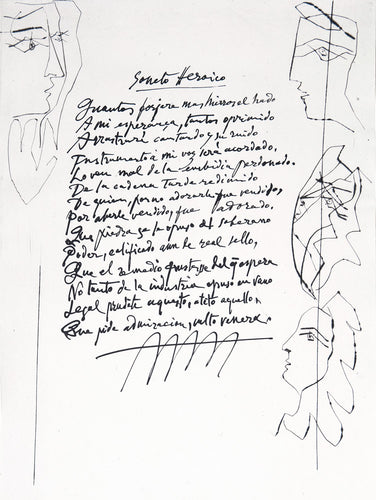 Soneto Heroico
Quantos forjere mas hierros el hado
A mi esperança, tantos oprimido
Arrastraré cantando y su ruido
Instrumento a mi voz será acordado,
mal de la embidia perdonado.
De la cadena tarde redimido
De quien, por no adorarle fue vendido,
Por aberle vendido, fue adorado.
Que piedra se le opuso al soberano
Poder, calificado aun de real sello,
Que el remedio frustasse del q espera
No tanto de la industria opuso en vano
Legal prudente aquesto, aquello,
Que pide admiracion, culto venera.